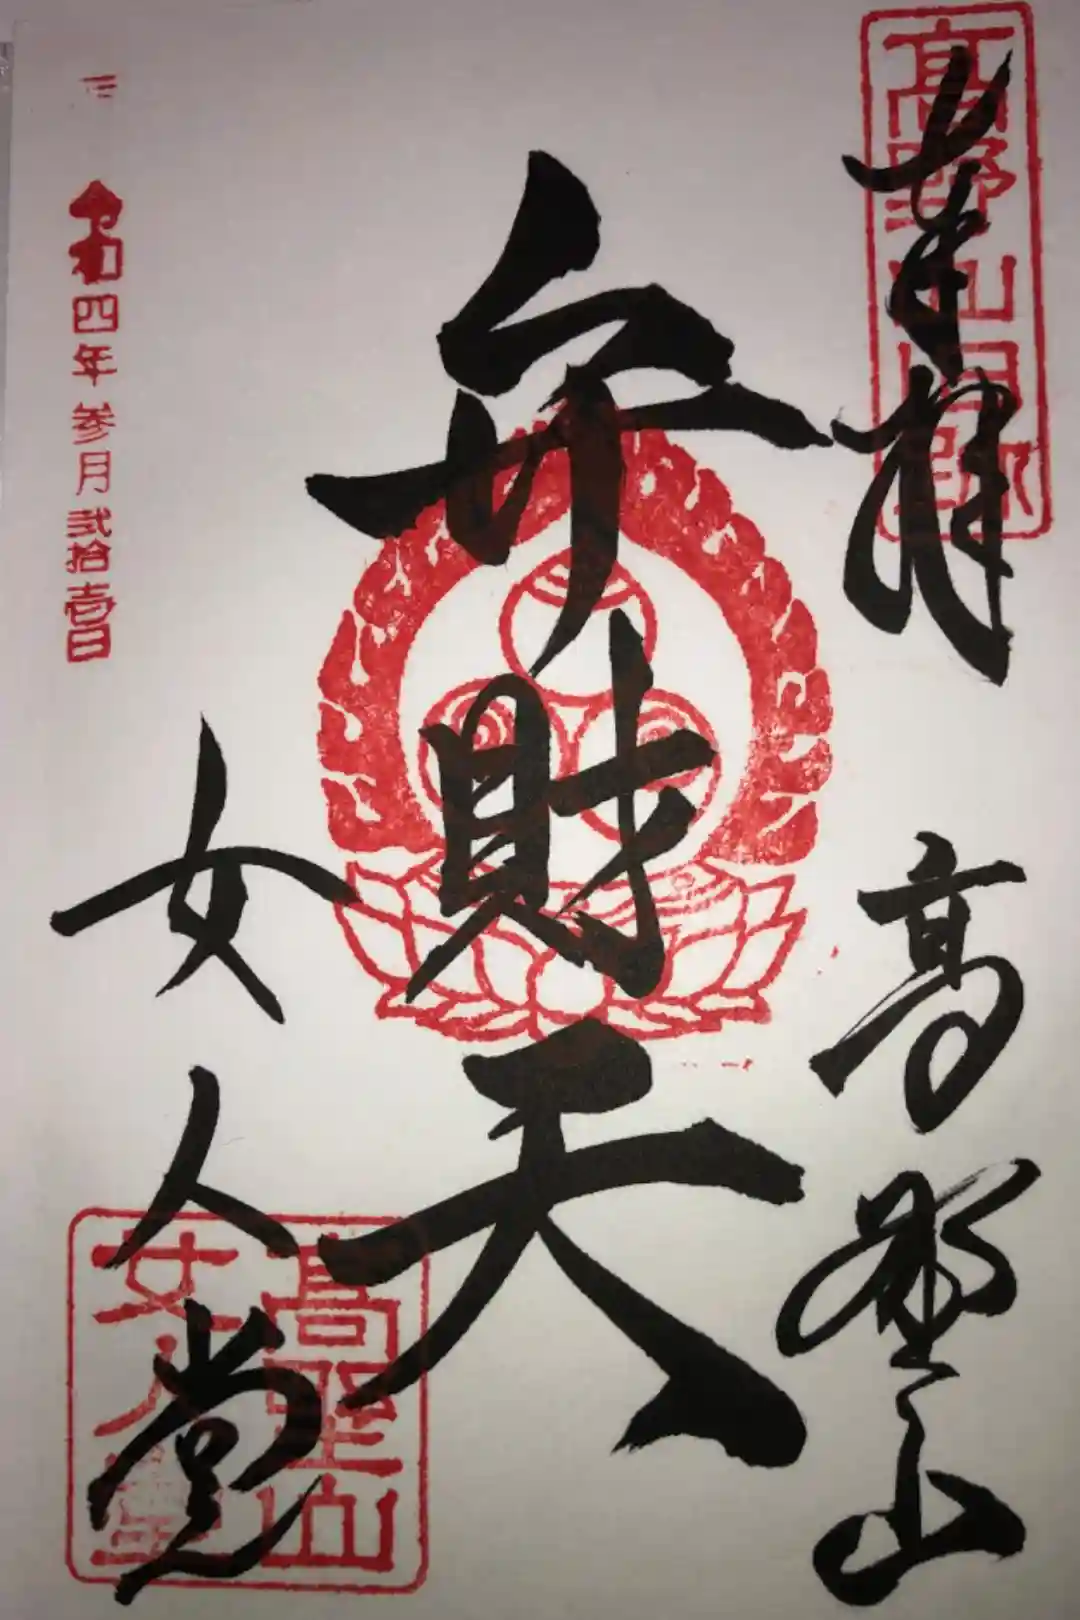 奉拝
高野山
高野山旧跡
弁財天
女人堂
高野山
女人堂
令和四年参月弐拾壱日